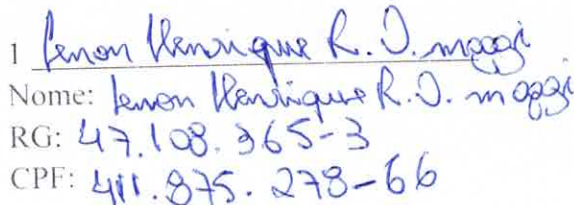 1 Lenon Henrique R. D. maggi
Nome: Lenon Henrique R. D. maggi
RG: 47.108.365-3
CPF: 411.875.278-66